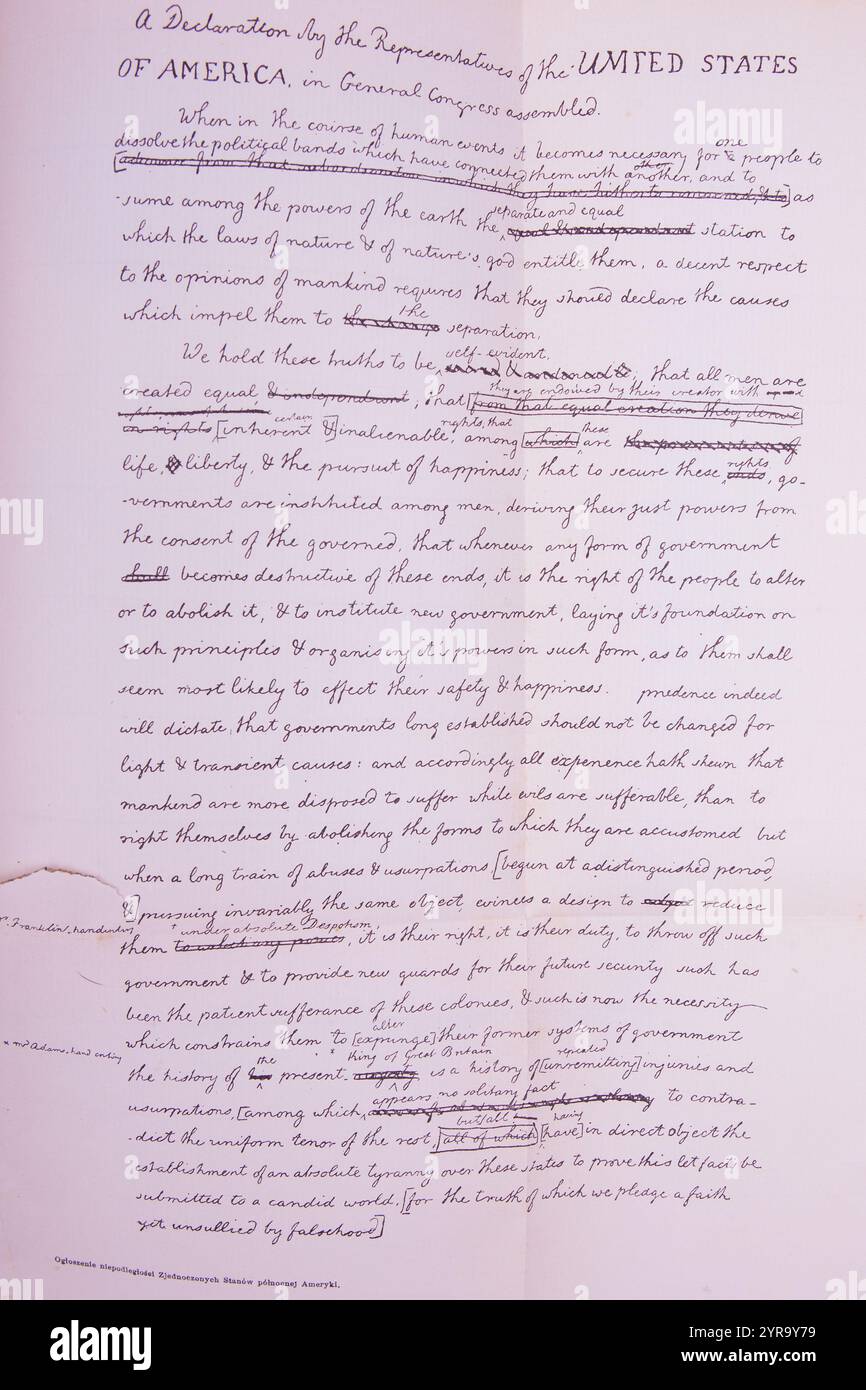 A Declaration by the Representatives of the UNITED STATES
OF AMERICA, in General Congress assembled.
When in the course of human events it becomes necessary for one people to
dissolve the political bands which have connected them with another, and to
[advance from that subordination in which they have hitherto remained, & to] as
-sume among the powers of the earth the separate and equal station to
which the laws of nature & of nature's god entitle them, a decent respect
to the opinions of mankind requires that they should declare the causes
which impel them to the separation.
We hold these truths to be self-evident, that all men are
created equal, & independent; that they are endowed by their creator with [from that equal creation they derive
in rights certain [inherent &] inalienable rights, that among [which] these are
life, & liberty, & the pursuit of happiness; that to secure these ends rights, go-
-vernments are instituted among men, deriving their just powers from
the consent of the governed, that whenever any form of government
shall becomes destructive of these ends, it is the right of the people to alter
or to abolish it, & to institute new government, laying it's foundation on
such principles & organising it's powers in such form, as to them shall
seem most likely to effect their safety & happiness. prudence indeed
will dictate that governments long established should not be changed for
light & transient causes: and accordingly all experience hath shewn that
mankind are more disposed to suffer while evils are sufferable, than to
right themselves by abolishing the forms to which they are accustomed but
when a long train of abuses & usurpations [begun at a distinguished period,
&] pursuing invariably the same object, evinces a design to reduce
Franklin's handwriting
them under absolute Despotism, it is their right, it is their duty, to throw off such
government & to provide new guards for their future security such has
been the patient sufferance of these colonies, & such is now the necessity
which constrains them to [expunge] alter their former systems of government
* Mr Adams' hand writing
the history of the present * King of Great Britain is a history of [unremitting] repeated injuries and
usurpations, [among which, appears no solitary fact to contra-
-dict the uniform tenor of the rest, [all of which] but all [have] having in direct object the
establishment of an absolute tyranny over these states to prove this let facts be
submitted to a candid world, [for the truth of which we pledge a faith
yet unsullied by falsehood]
Ogłoszenie niepodległości Zjednoczonych Stanów północnej Ameryki.
alamy
alamy
Image ID: 2YR9Y79
www.alamy.com